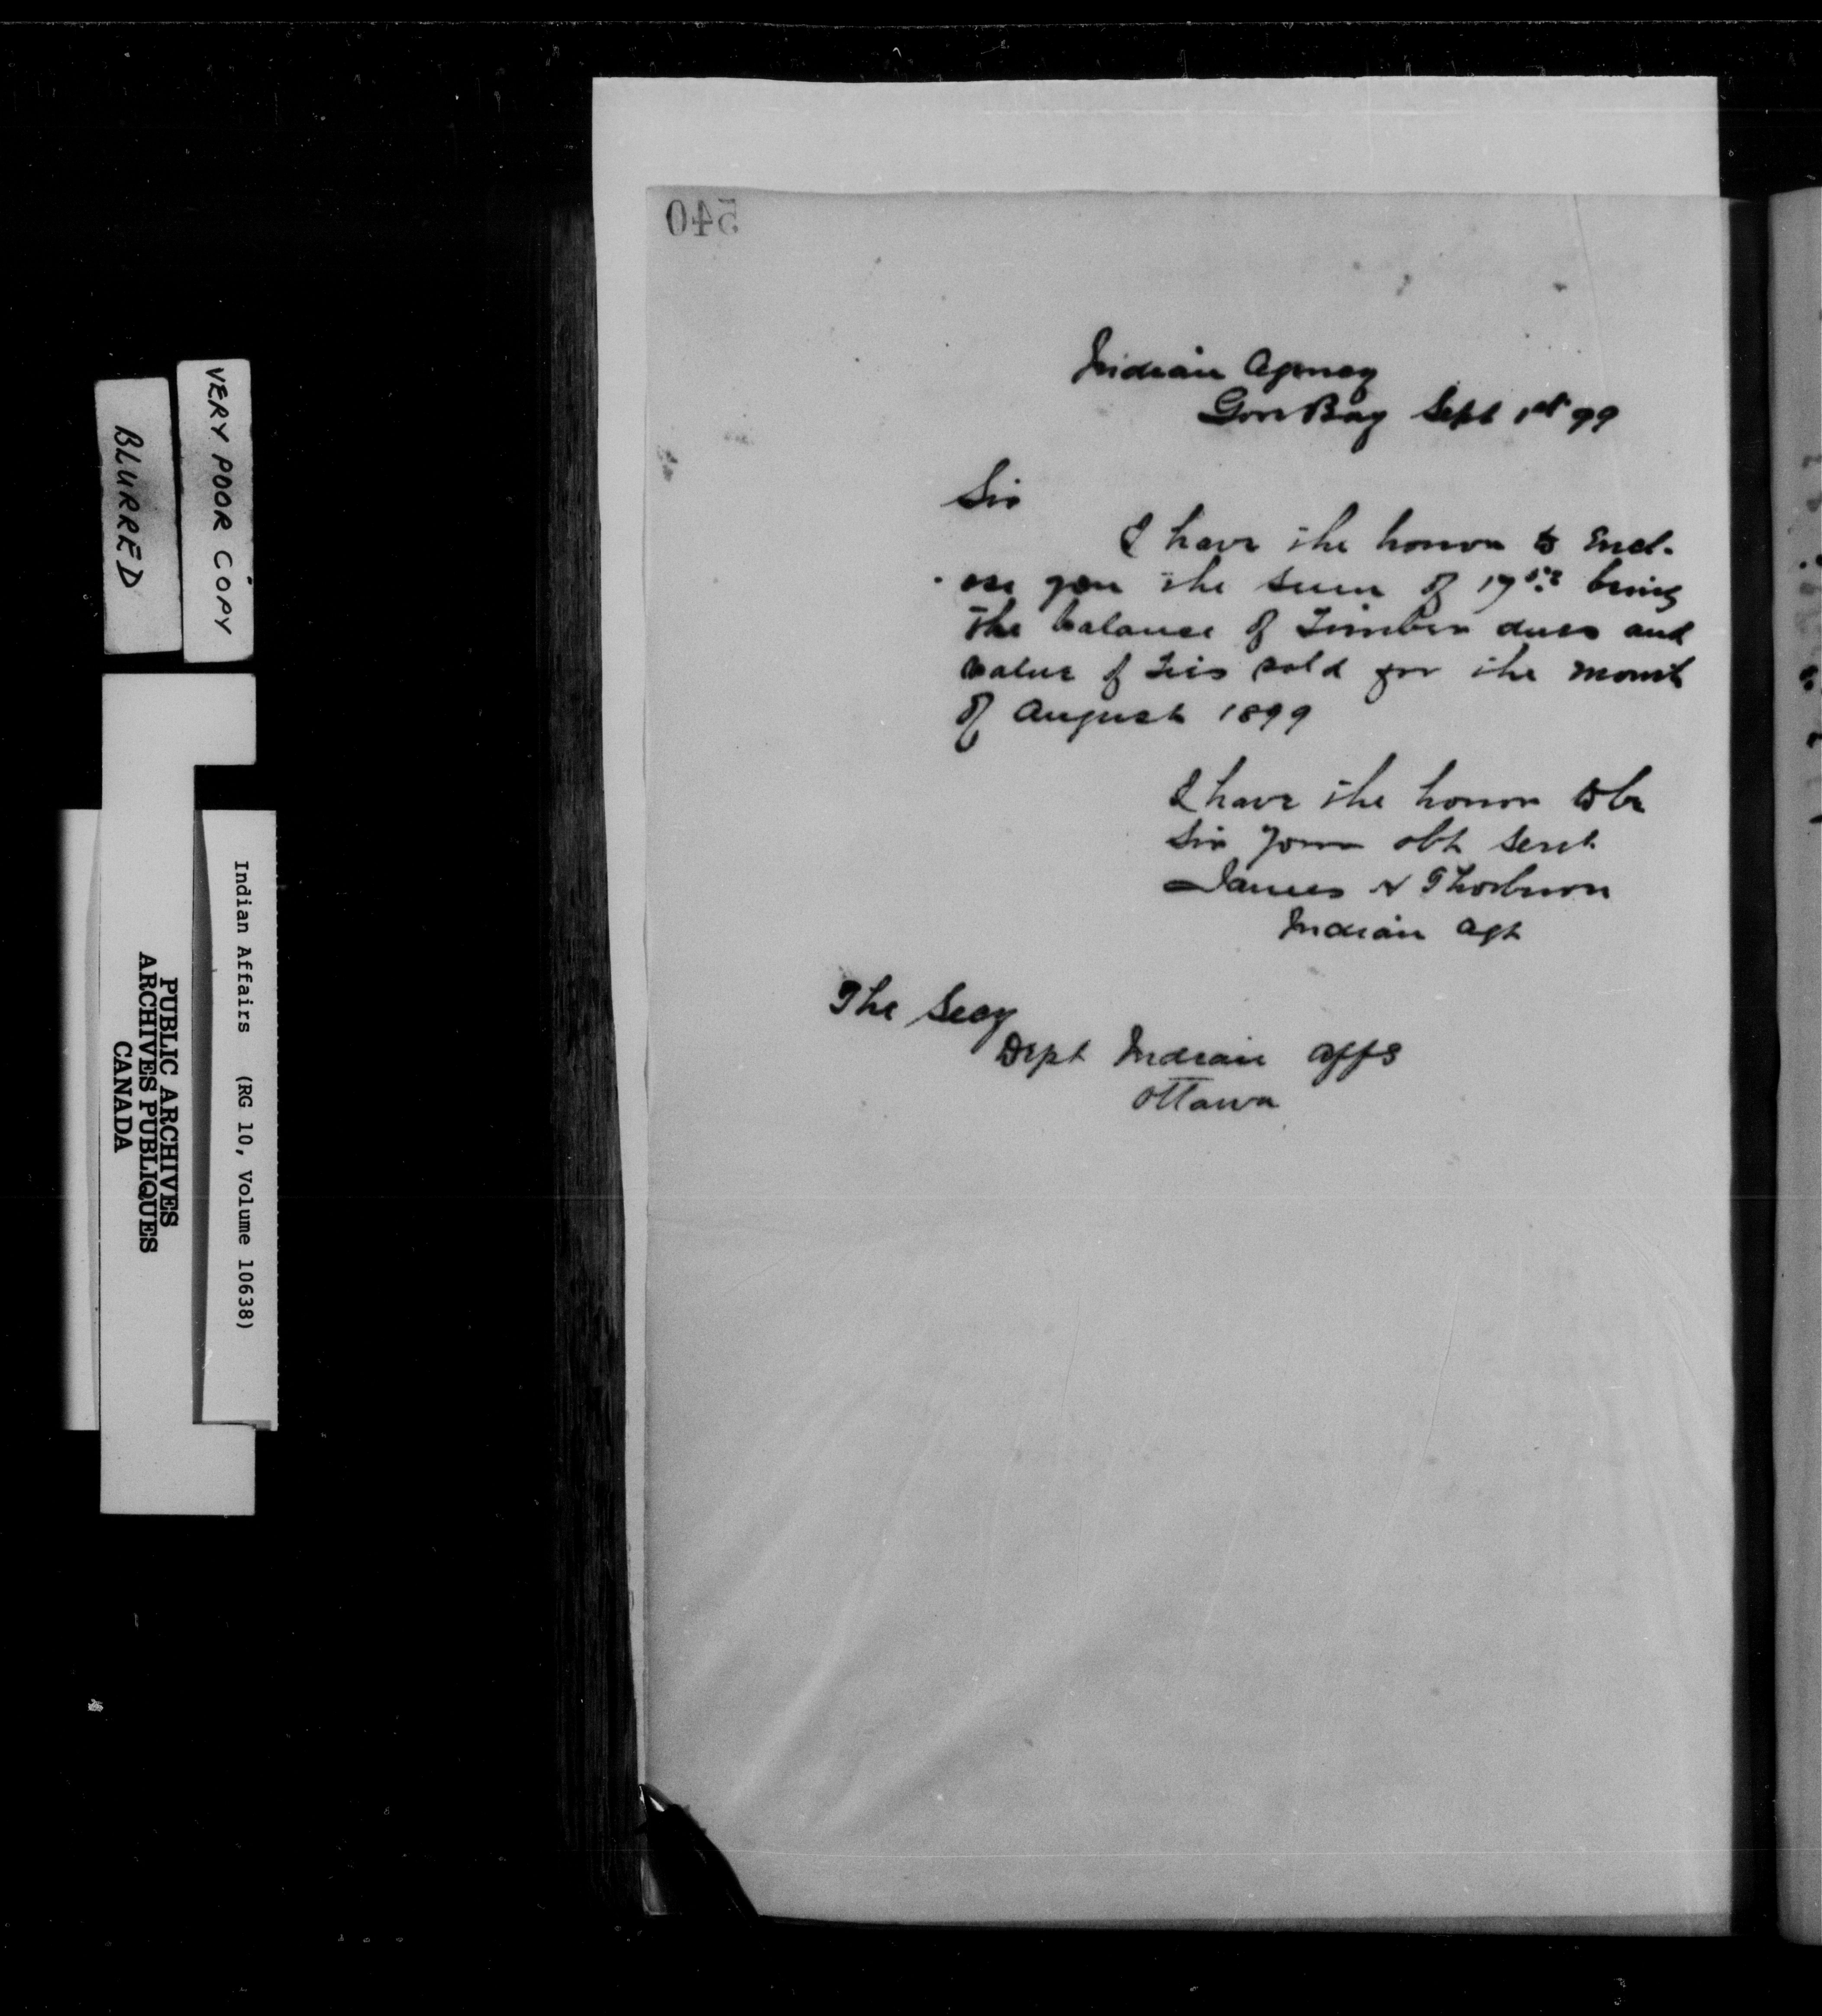 540
Indian Agency
Gore Bay Sept 1st 99
Sir
I have the honor to encl-
ose you the sum of being
The balance of Timber dues and
value of Ties sold for the month
of August 1899
I have the honor to be
Sir Your obt Servt
James H Thorburn
Indian Agt
The Secy
Dept Indian Affs
Ottawa
VERY POOR COPY
BLURRED
Indian Affairs (RG 10, Volume 10638)
PUBLIC ARCHIVES
ARCHIVES PUBLIQUES
CANADA